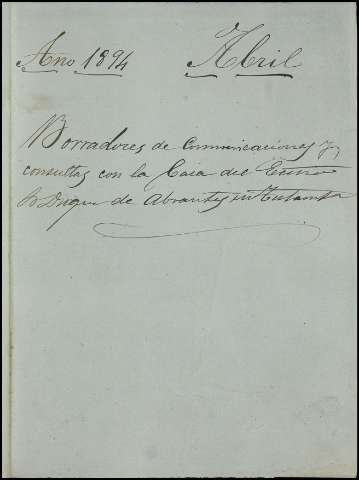 Año 1894 Abril
Borradores de Comunicaciones y
consultas con la Casa del Excmo
Sr Duque de Abrantes en